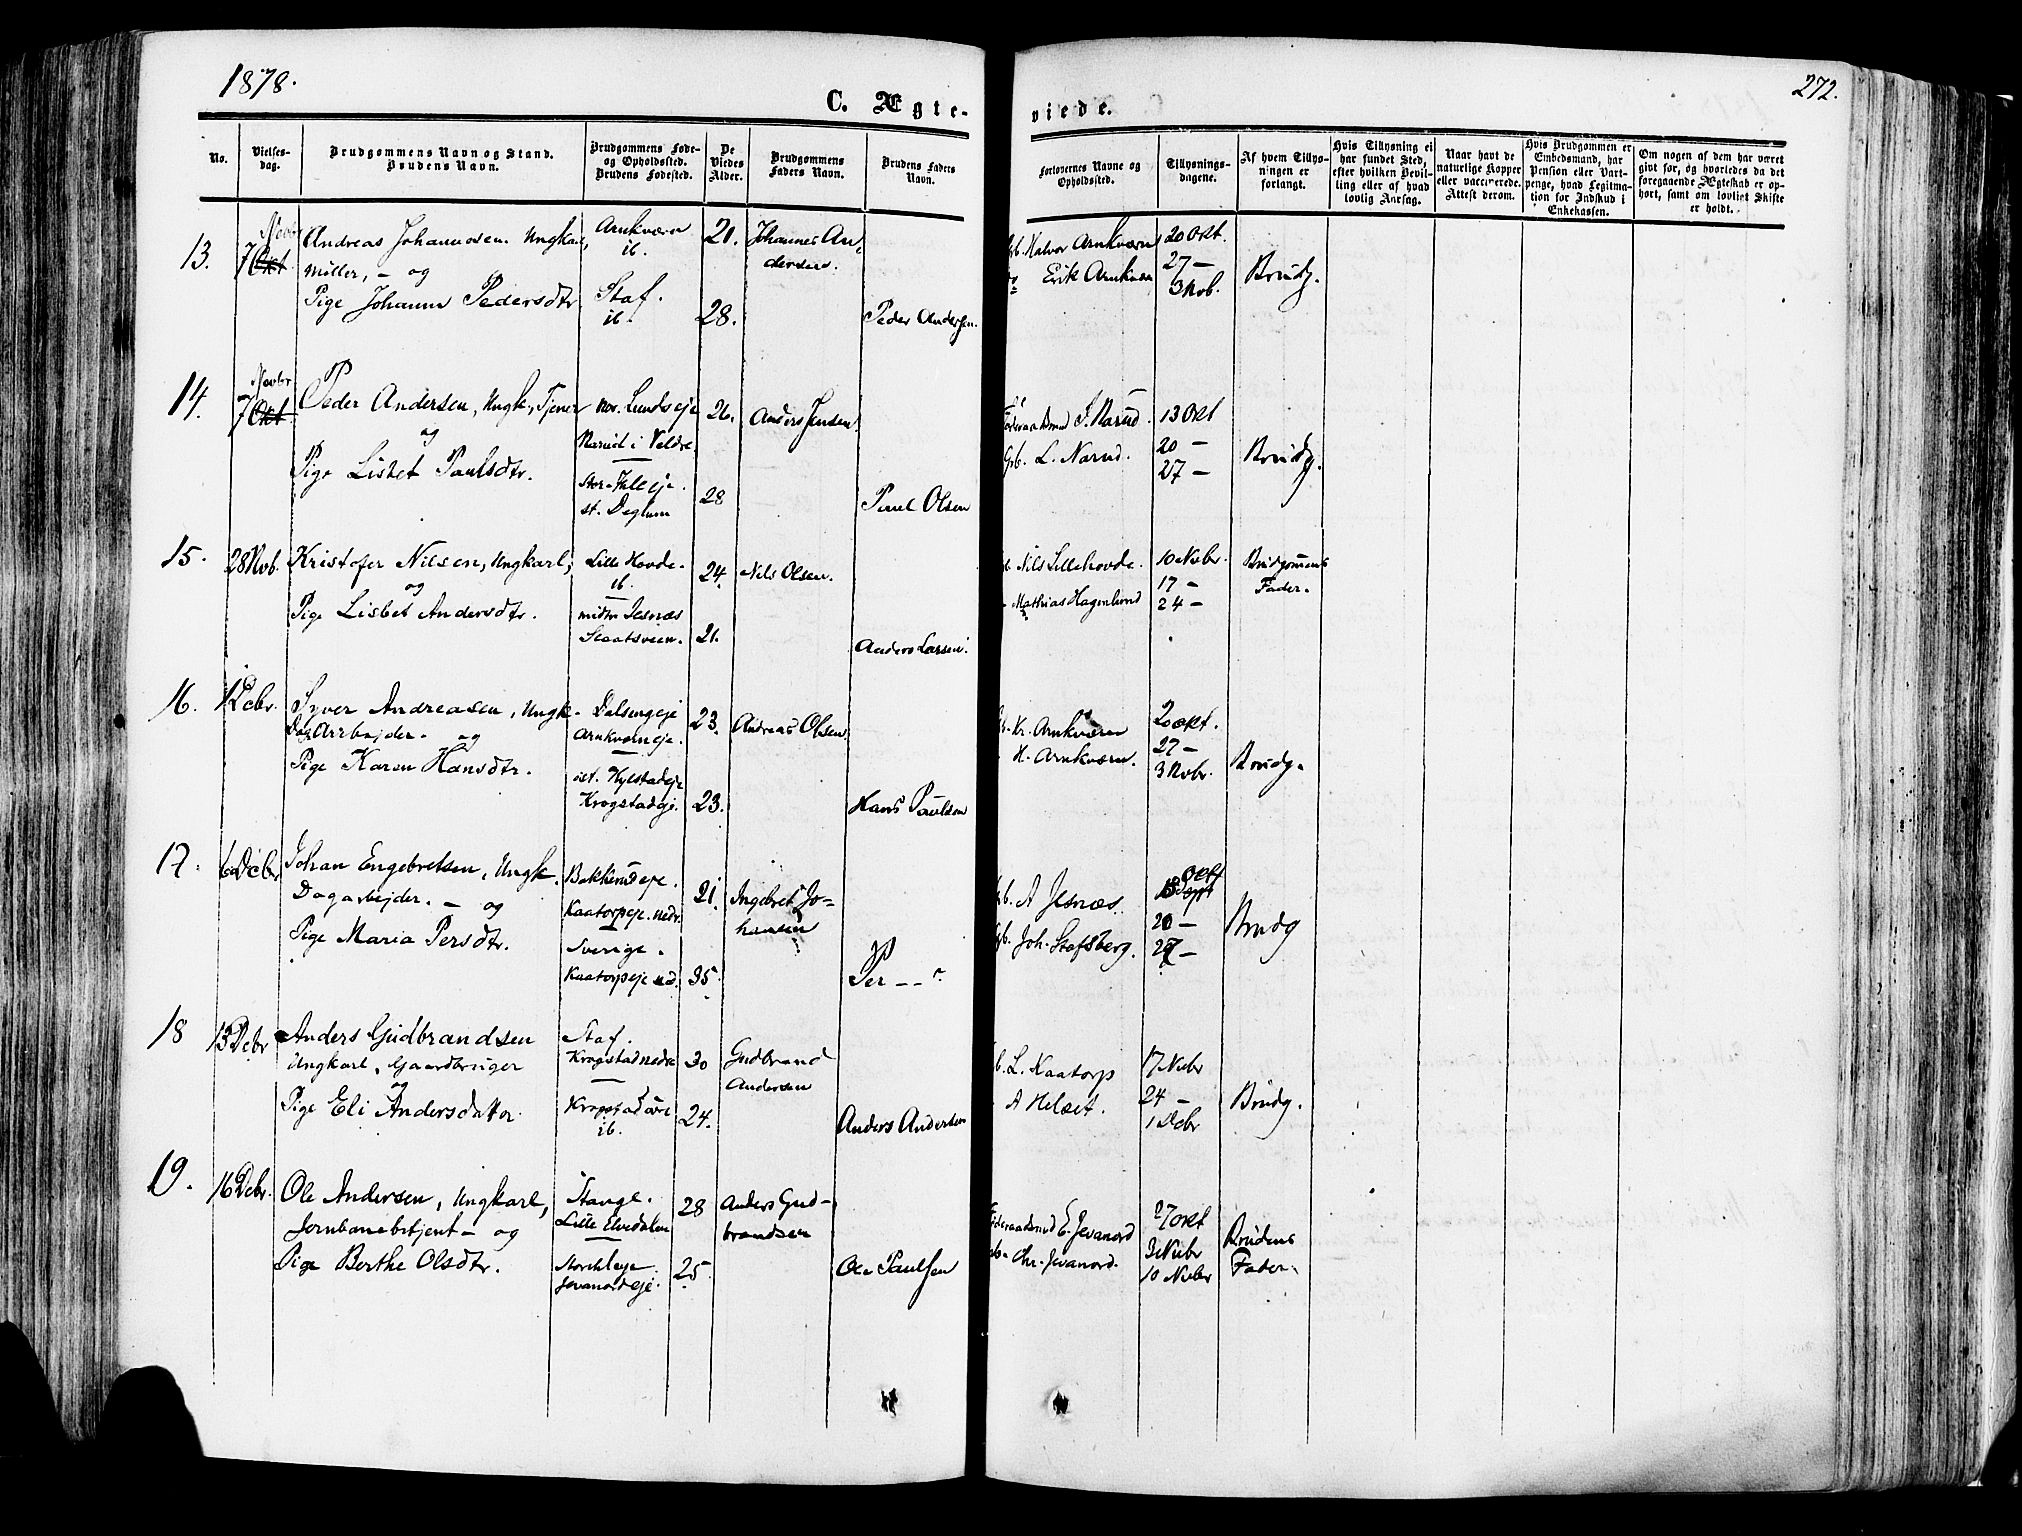 1878.
272.
C. Ægte-
viede.
No.
Vielses-
dag.
Brudgommens Navn og Stand.
Brudens Navn.
Brudgommens Føde-
og Opholdssted.
Brudens Fødested.
De
Viedes
Alder.
Brudgommens
Faders Navn.
Brudens Faders
Navn.
Forlovernes Navne og
Opholdssted.
Tillysnings-
dagene.
Af hvem Tillys-
ningen er
forlangt.
Hvis Tillysning ei
har fundet Sted,
efter hvilken Bevil-
ling eller af hvad
lovlig Aarsag.
Naar havt de
naturlige Kopper
eller vaccinerede.
Attest derom.
Hvis Brudgommen er
Embedsmand, har
Pension eller Vart-
penge, hvad Legitima-
tion for Indskud i
Enkekassen.
Om nogen af dem har været
givt før, og hvorledes da det
foregaaende Ægteskab er op-
hørt, samt om lovligt Skifte
er holdt.
13.
7 Okt.
Andreas Johannesen. Ungkarl,
Møller, - og
Pige Johanne Pedersdtr
Arnkværn
ib.
Staf.
ib.
21.
28.
Johannes An-
dersen.
Peder Andersen.
Gb. Halvor Arnkværn
do Erik Arnkværn
20 Okt.
27 -
3 Nov.
Brudg.
14.
Novbr
7 Okt
Peder Andersen, Ungk., Tjener
og
Pige Lisbet Paulsdtr.
nor. Lundseje
Narud i Veldre.
st. Deglum
26.
28
Anders Jensen
Paul Olsen
J. Narud.
Gb. L. Narud.
13 Okt
20 -
27 -
Brudg.
15.
28 Nov.
Kristofer Nilsen, Ungkarl,
og
Pige Lisbet Andersdtr.
Lille Hovde.
ib.
midtr Jesnæs
Staatsveen.
24.
21.
Nils Olsen.
Anders Larsen.
Nils Lillehovde.
Mathias Hagenlund
10 Novbr.
17 -
24 -
Brudgomens
Fader.
16.
Syver Andreasen, Ungk.
Dagarbejder. og
Pige Karen Hansdtr.
Dalsengeje
Arnkværneje.
Krogstadeje.
23.
23.
Andreas Olsen.
Hans Paulsen
Kr. Arnkværn
H. Arnkværn.
20 Okt.
27 -
3 Novbr.
Brudg.
17.
6 Decbr
Johan Engebretsen, Ungk.
Dagarbejder. - og
Pige Maria Persdtr.
Bakkerudeje.
Kaatorpeje. nedr.
Sverige.
Kaatorpeje ned.
21.
35.
Ingebret Jo-
hansen
Per - - ?
Gb. A Jesnæs.
Gb. Joh. Stafsberg.
13 Sept Okt
20 -
27 -
Brudg
18
13 Decbr
Anders Gudbrandsen
Ungkarl, Gaardbruger
og
Pige Eli Andersdatter.
Staf.
Krogstad nedre
Krogstad øvre
ib.
30
24.
Gudbrand
Andersen
Anders Andersen
L. Kaatorp
A Helset.
17 Novbr
24 -
1 Dcbr
Brudg.
19.
16 Dcbr.
Ole Andersen, Ungkarl,
Jernbanebetjent - og
Pige Berthe Olsdtr.
Stange.
Lille Elvedalen
Jevanordeje.
28
25.
Anders Gud-
brandsen
Ole Paulsen
Føderaadsmd E. Jevanord
Chr. Jevanord.
27 Okt
3 Novbr
10 Novbr
Brudens
Fader.